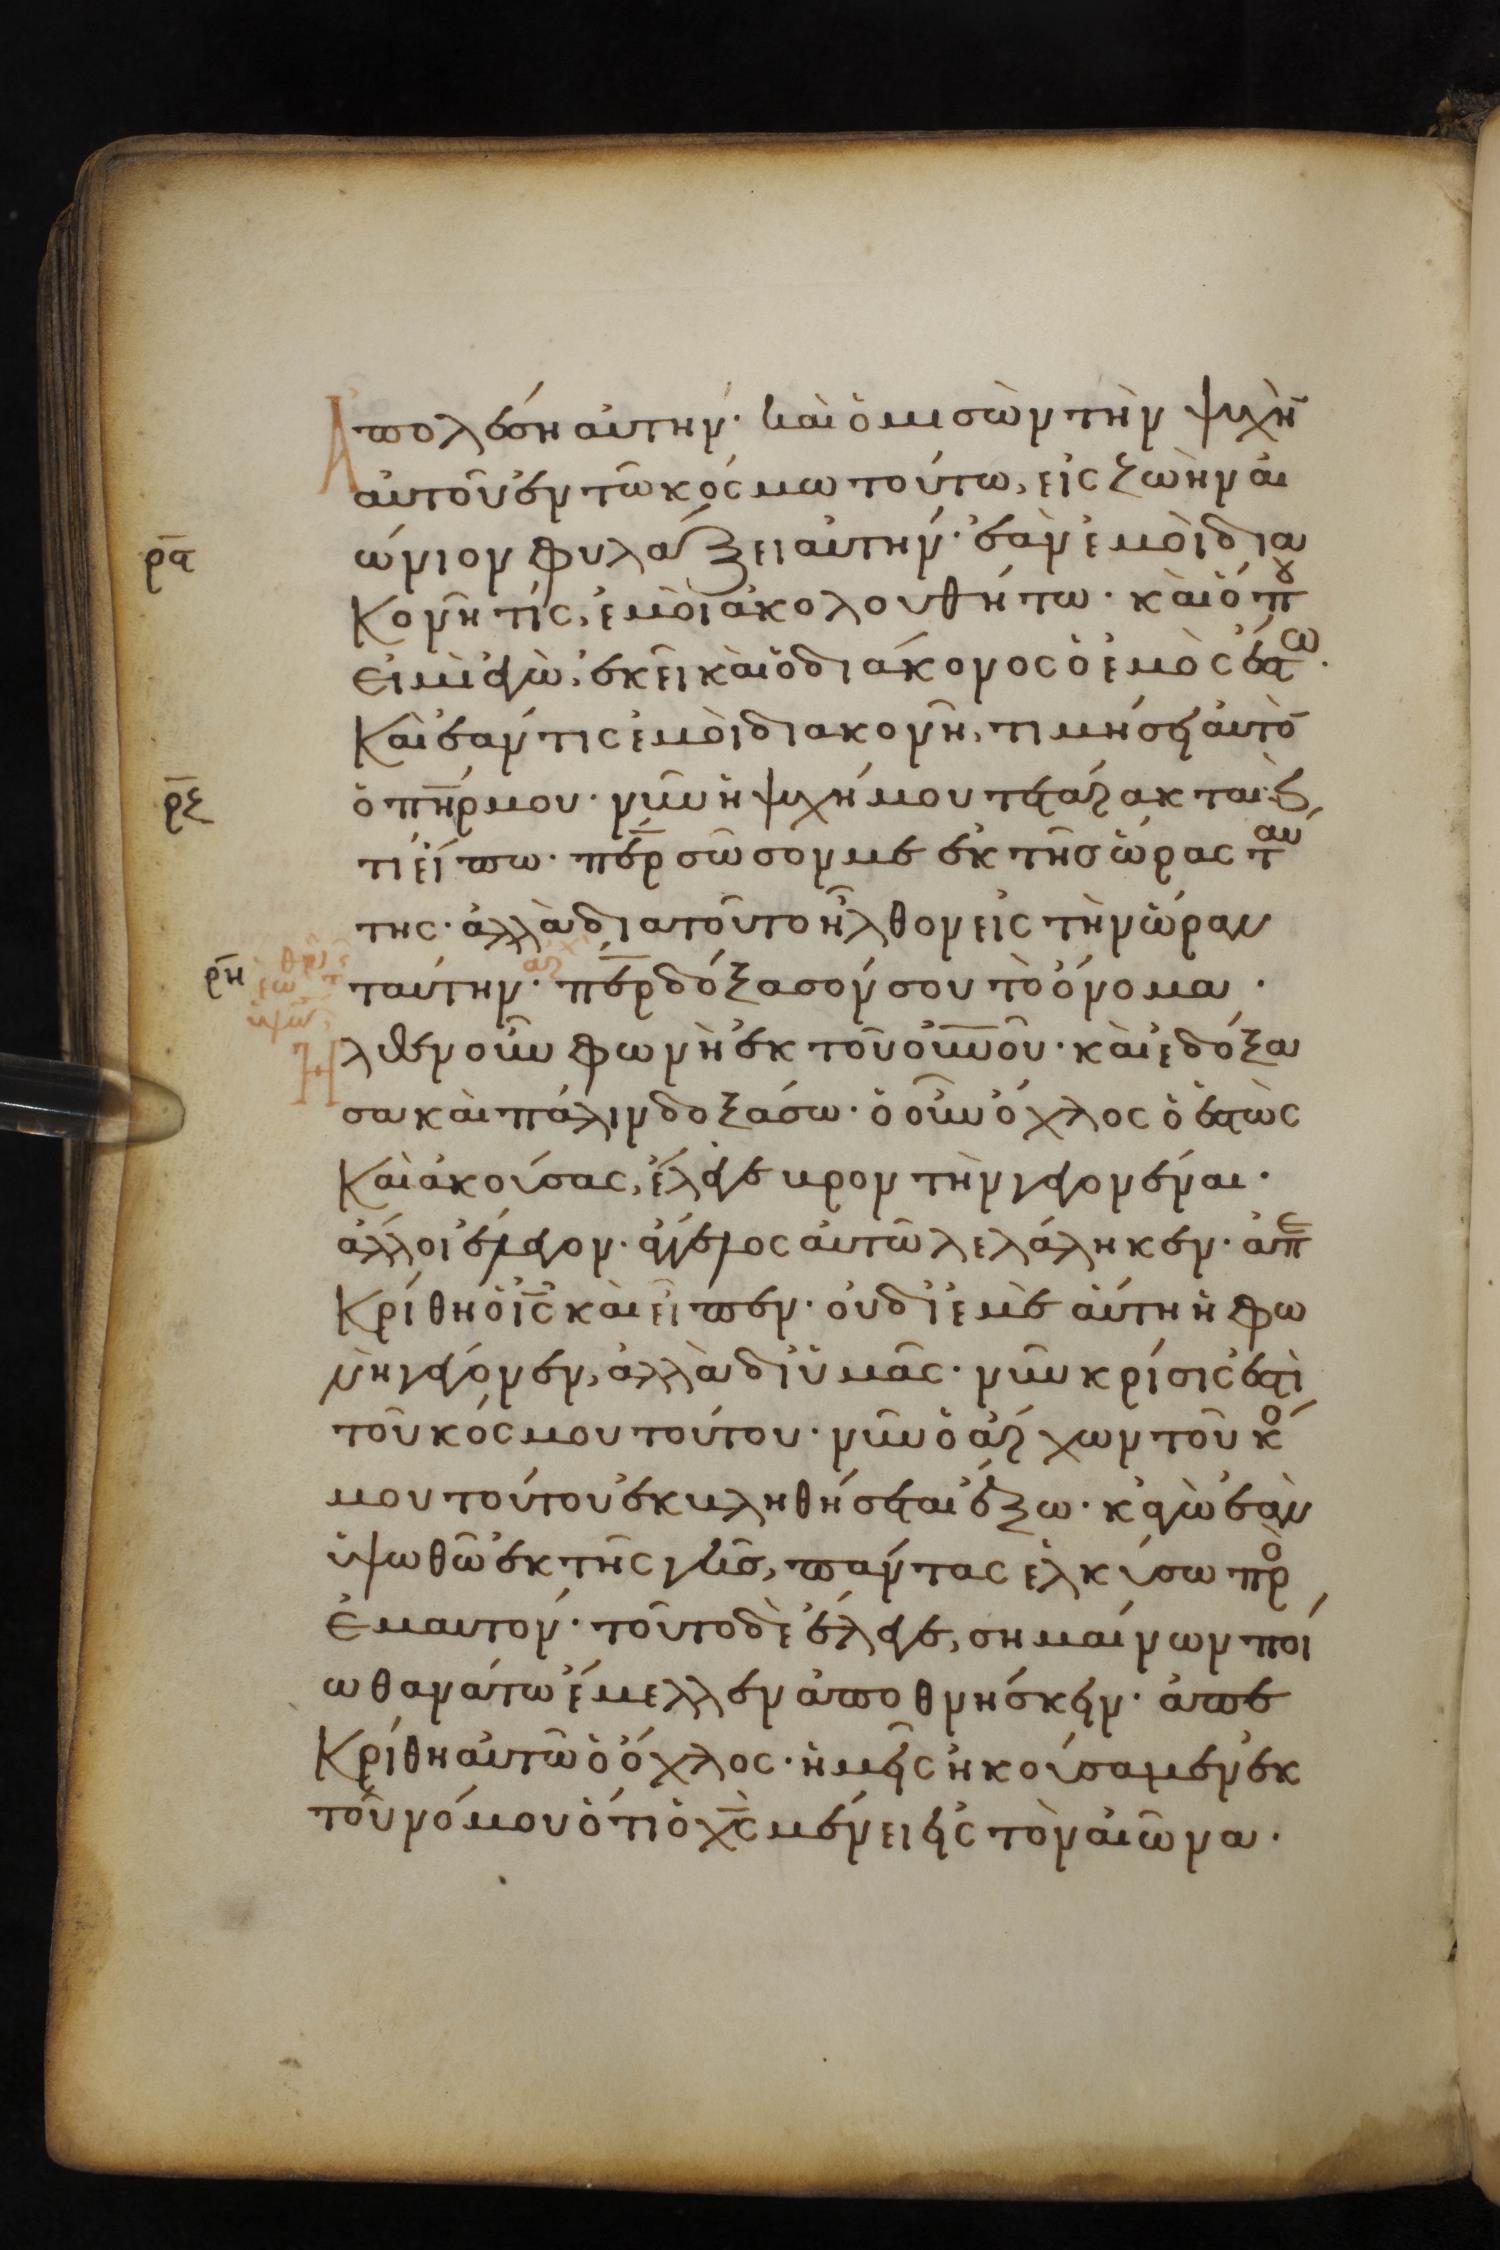 Ἀπολέση αὐτήν· καὶ ὁ μισῶν τὴν ψυχὴ̄
αὐτοῦ ἐν τῶ κόσμω τούτω, εἰς ζωὴν αἰ
ρ̄ϛ
ώνιον φυλάξει αὐτήν· ἐὰν ἐμοὶ δια
κονῆ τίς, ἐμοὶ ἀκολουθήτω· καὶ ὅπου
εἰμὶ ἐγὼ, ἐκεῖ καὶ ὁ διάκονος ὁ ἐμὸς ἔστω.
Καὶ ἐάν τις ἐμοὶ διακονῆ, τιμήσει αὐτὸ̄
ρ̄ζ
ὁ π̄η̄ρ μου· νῦν ἡ ψυχή μου τετάρακται· καὶ
τί εἴπω· π̄ε̄ρ σῶσόν με ἐκ τῆς ὥρας ταύ
της· ἀλλὰ διατοῦτο ἦλθον εἰς τὴν ὥραν
ρ̄η
ταύτην· π̄ε̄ρ δόξασόν σου τὸ ὄνομα·
Ἦλθεν οὖν φωνὴ ἐκ τοῦ οὐ̄ν̄οῦ· καὶ ἐδόξα
σα καὶ πάλιν δοξάσω· ὁ οὖν ὄχλος ὁ ἑστὼς
Καὶ ἀκούσας, ἔλεγε βροντὴν γεγονέναι·
ἄλλοι ἔλεγον· ἄγγελος αὐτῶ λελάληκεν· ἀπε
Κρίθη ὁ ῑ̄ς̄ καὶ εἶπεν· οὐ δι' ἐμὲ αὕτη ἡ φω
νὴ γέγονεν, ἀλλὰ δι' ὑμᾶς· νῦν κρίσις ἐστὶ
τοῦ κόσμου τούτου· νῦν ὁ ἄρχων τοῦ κό
μου τούτου ἐκβληθήσεται ἔξω· κἀγὼ ἐὰν
ὑψωθῶ ἐκ τῆς γῆς, πάντας ἑλκύσω πρὸ
Ἐμαυτόν· τοῦτο δὲ ἔλεγε, σημαίνων ποί
ω θανάτω ἔμελλεν ἀποθνήσκειν· ἀπε
Κρίθη αὐτῶ ὁ ὄχλος· ἡμεῖς ἠκούσαμεν ἐκ
τοῦ νόμου ὅτι ὁ χ̄ς̄ μένει εἰς τὸν αἰῶνα·